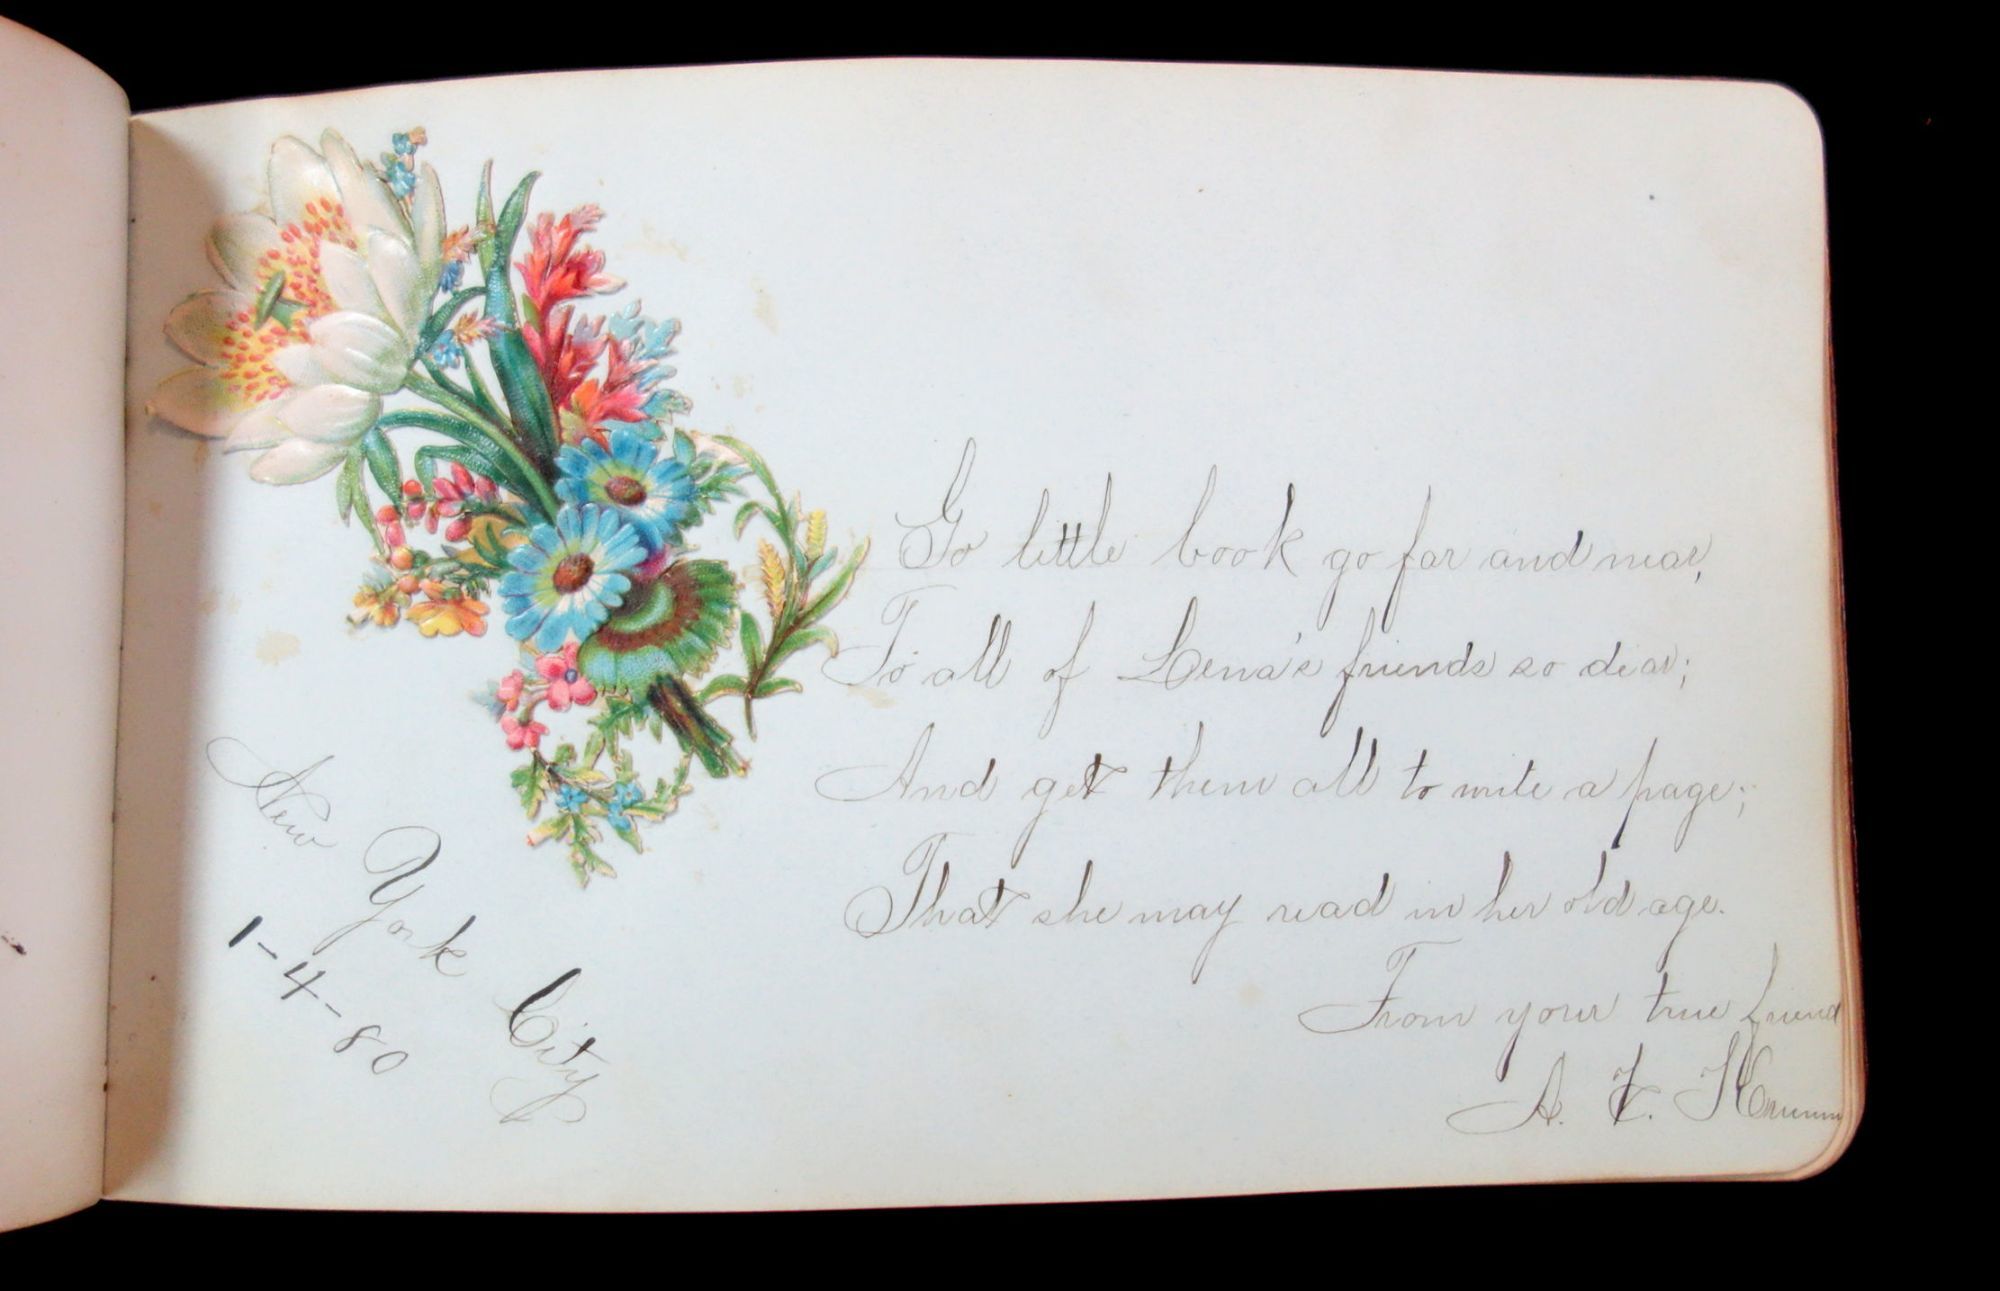 Go little book go far and near,
To all of Lena's friends so dear;
And get them all to write a page;
That she may read in her old age.
From your true friend
A. F.
New York City
1-4-80